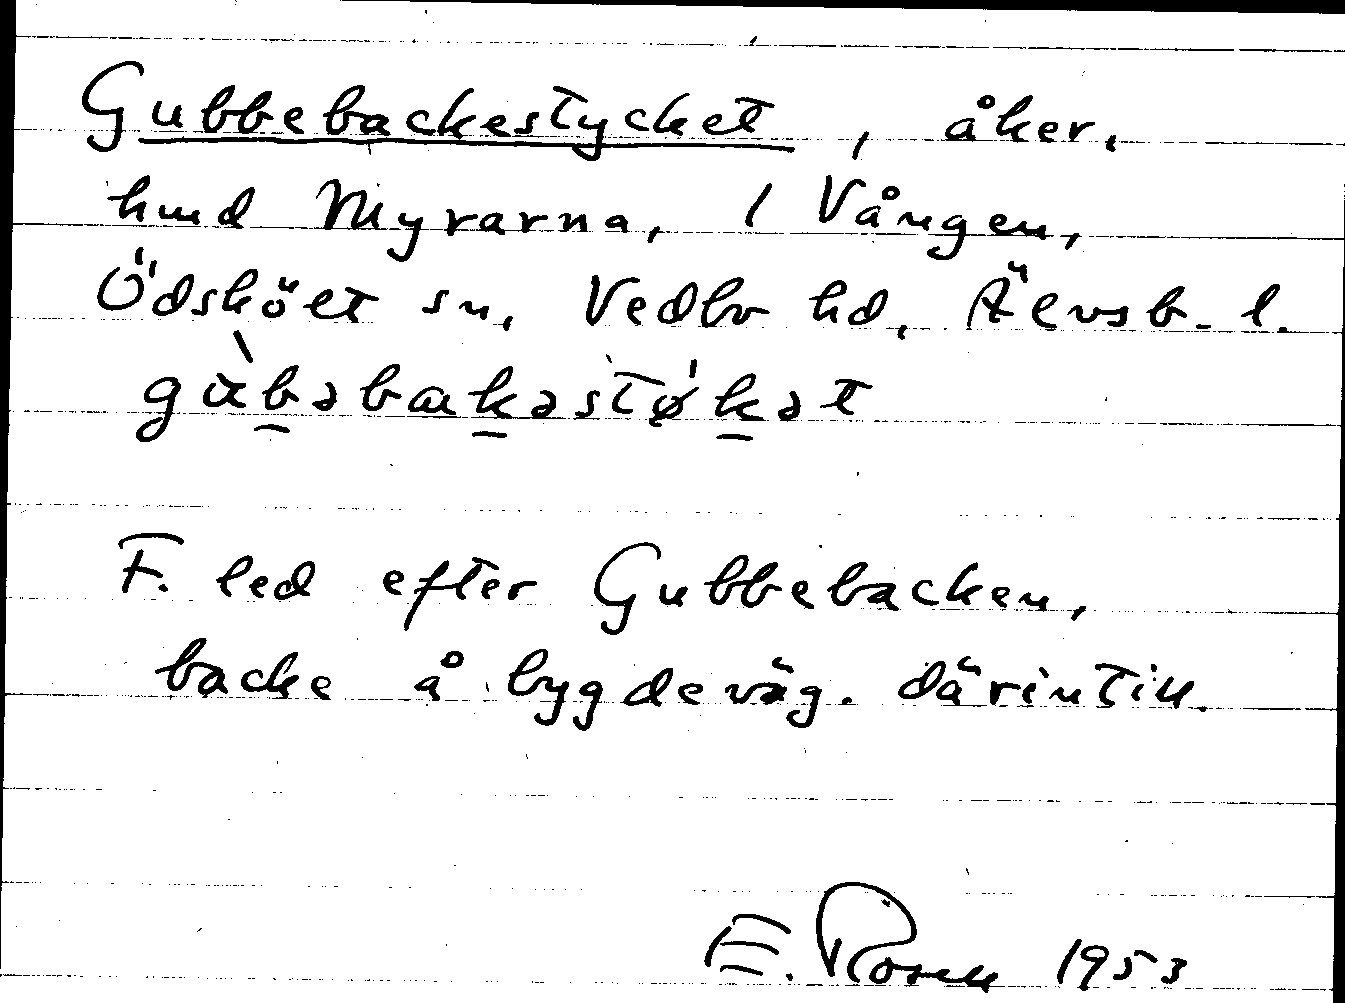 Gubbebackestycket, åker,
hmd Myrarna, 1 Vången,
Ödskölt sn, Vedbo hd, Älvsb. l.
gùbəbakəstø̍kət
F. led efter Gubbebacken,
backe å bygdeväg. därintill.
E. Rosell 1953